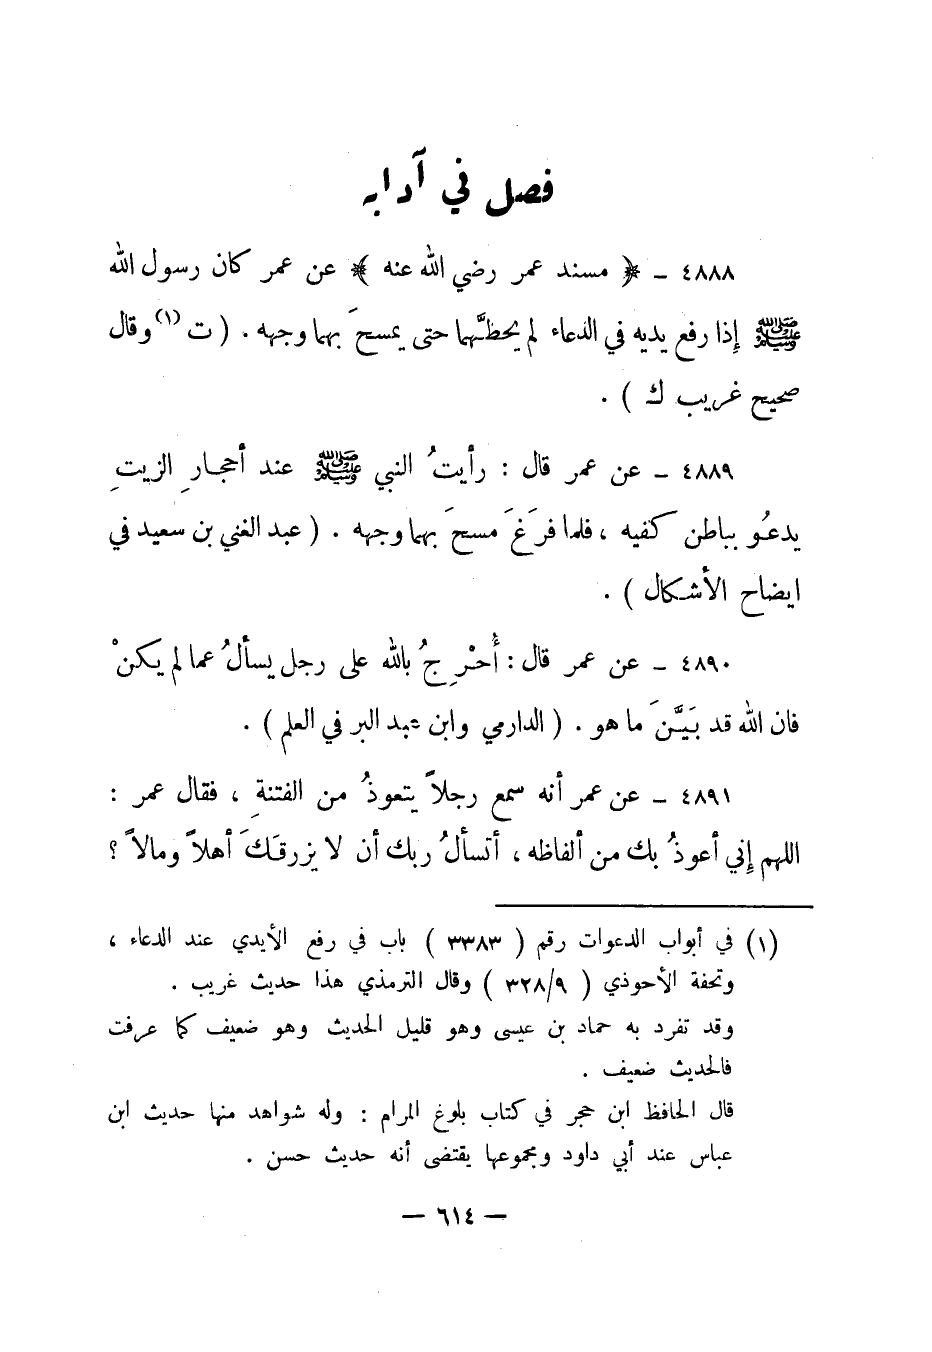 فصل في آدابه
٤٨٨٨ – ﴿ مسند عمر رضي الله عنه ﴾ عن عمر كان رسول الله
ﷺ إِذا رفع يديه في الدعاء لم يحطَّهما حتى يمسحَ بهما وجهه . ( ت (١) وقال
صحيح غريب ك ) .
٤٨٨٩ – عن عمر قال : رأيتُ النبي ﷺ عند أحجارِ الزيتِ
يدعُو بباطن كفيه ، فلما فرَغَ مسحَ بهما وجهه . ( عبد الغني بن سعيد في
ايضاح الأشكال ) .
٤٨٩٠ – عن عمر قال : أُحْرِجُ بالله على رجل يسألُ عما لم يكنْ
فان الله قد بَيَّنَ ما هو . ( الدارمي وابن عبد البر في العلم ) .
٤٨٩١ – عن عمر أنه سمع رجلاً يتعوذُ من الفتنةِ ، فقال عمر :
اللهم إِني أعوذُ بك من ألفاظه ، أتسألُ ربك أن لا يزرقَكَ أهلاً ومالاً ؟
(١) في أبواب الدعوات رقم ( ٣٣٨٣ ) باب في رفع الأيدي عند الدعاء ،
وتحفة الأحوذي ( ٣٢٨/٩ ) وقال الترمذي هذا حديث غريب .
وقد تفرد به حماد بن عيسى وهو قليل الحديث وهو ضعيف كما عرفت
فالحديث ضعيف .
قال الحافظ ابن حجر في كتاب بلوغ المرام : وله شواهد منها حديث ابن
عباس عند أبي داود ومجموعها يقتضى أنه حديث حسن .
– ٦١٤ –